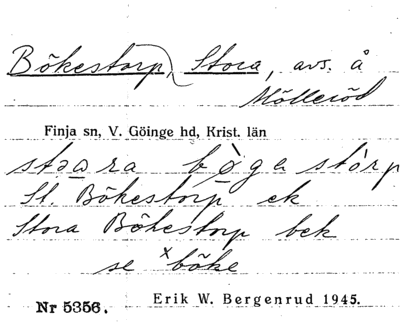 Bökestorp, Stora, avs. å
Mölleröd
Finja sn, V. Göinge hd, Krist. län
stǝara bø̀gastòrp
St. Bökestorp ek
Stora Bökestorp bek
se ˣböke
Nr 5356. Erik W. Bergenrud 1945.